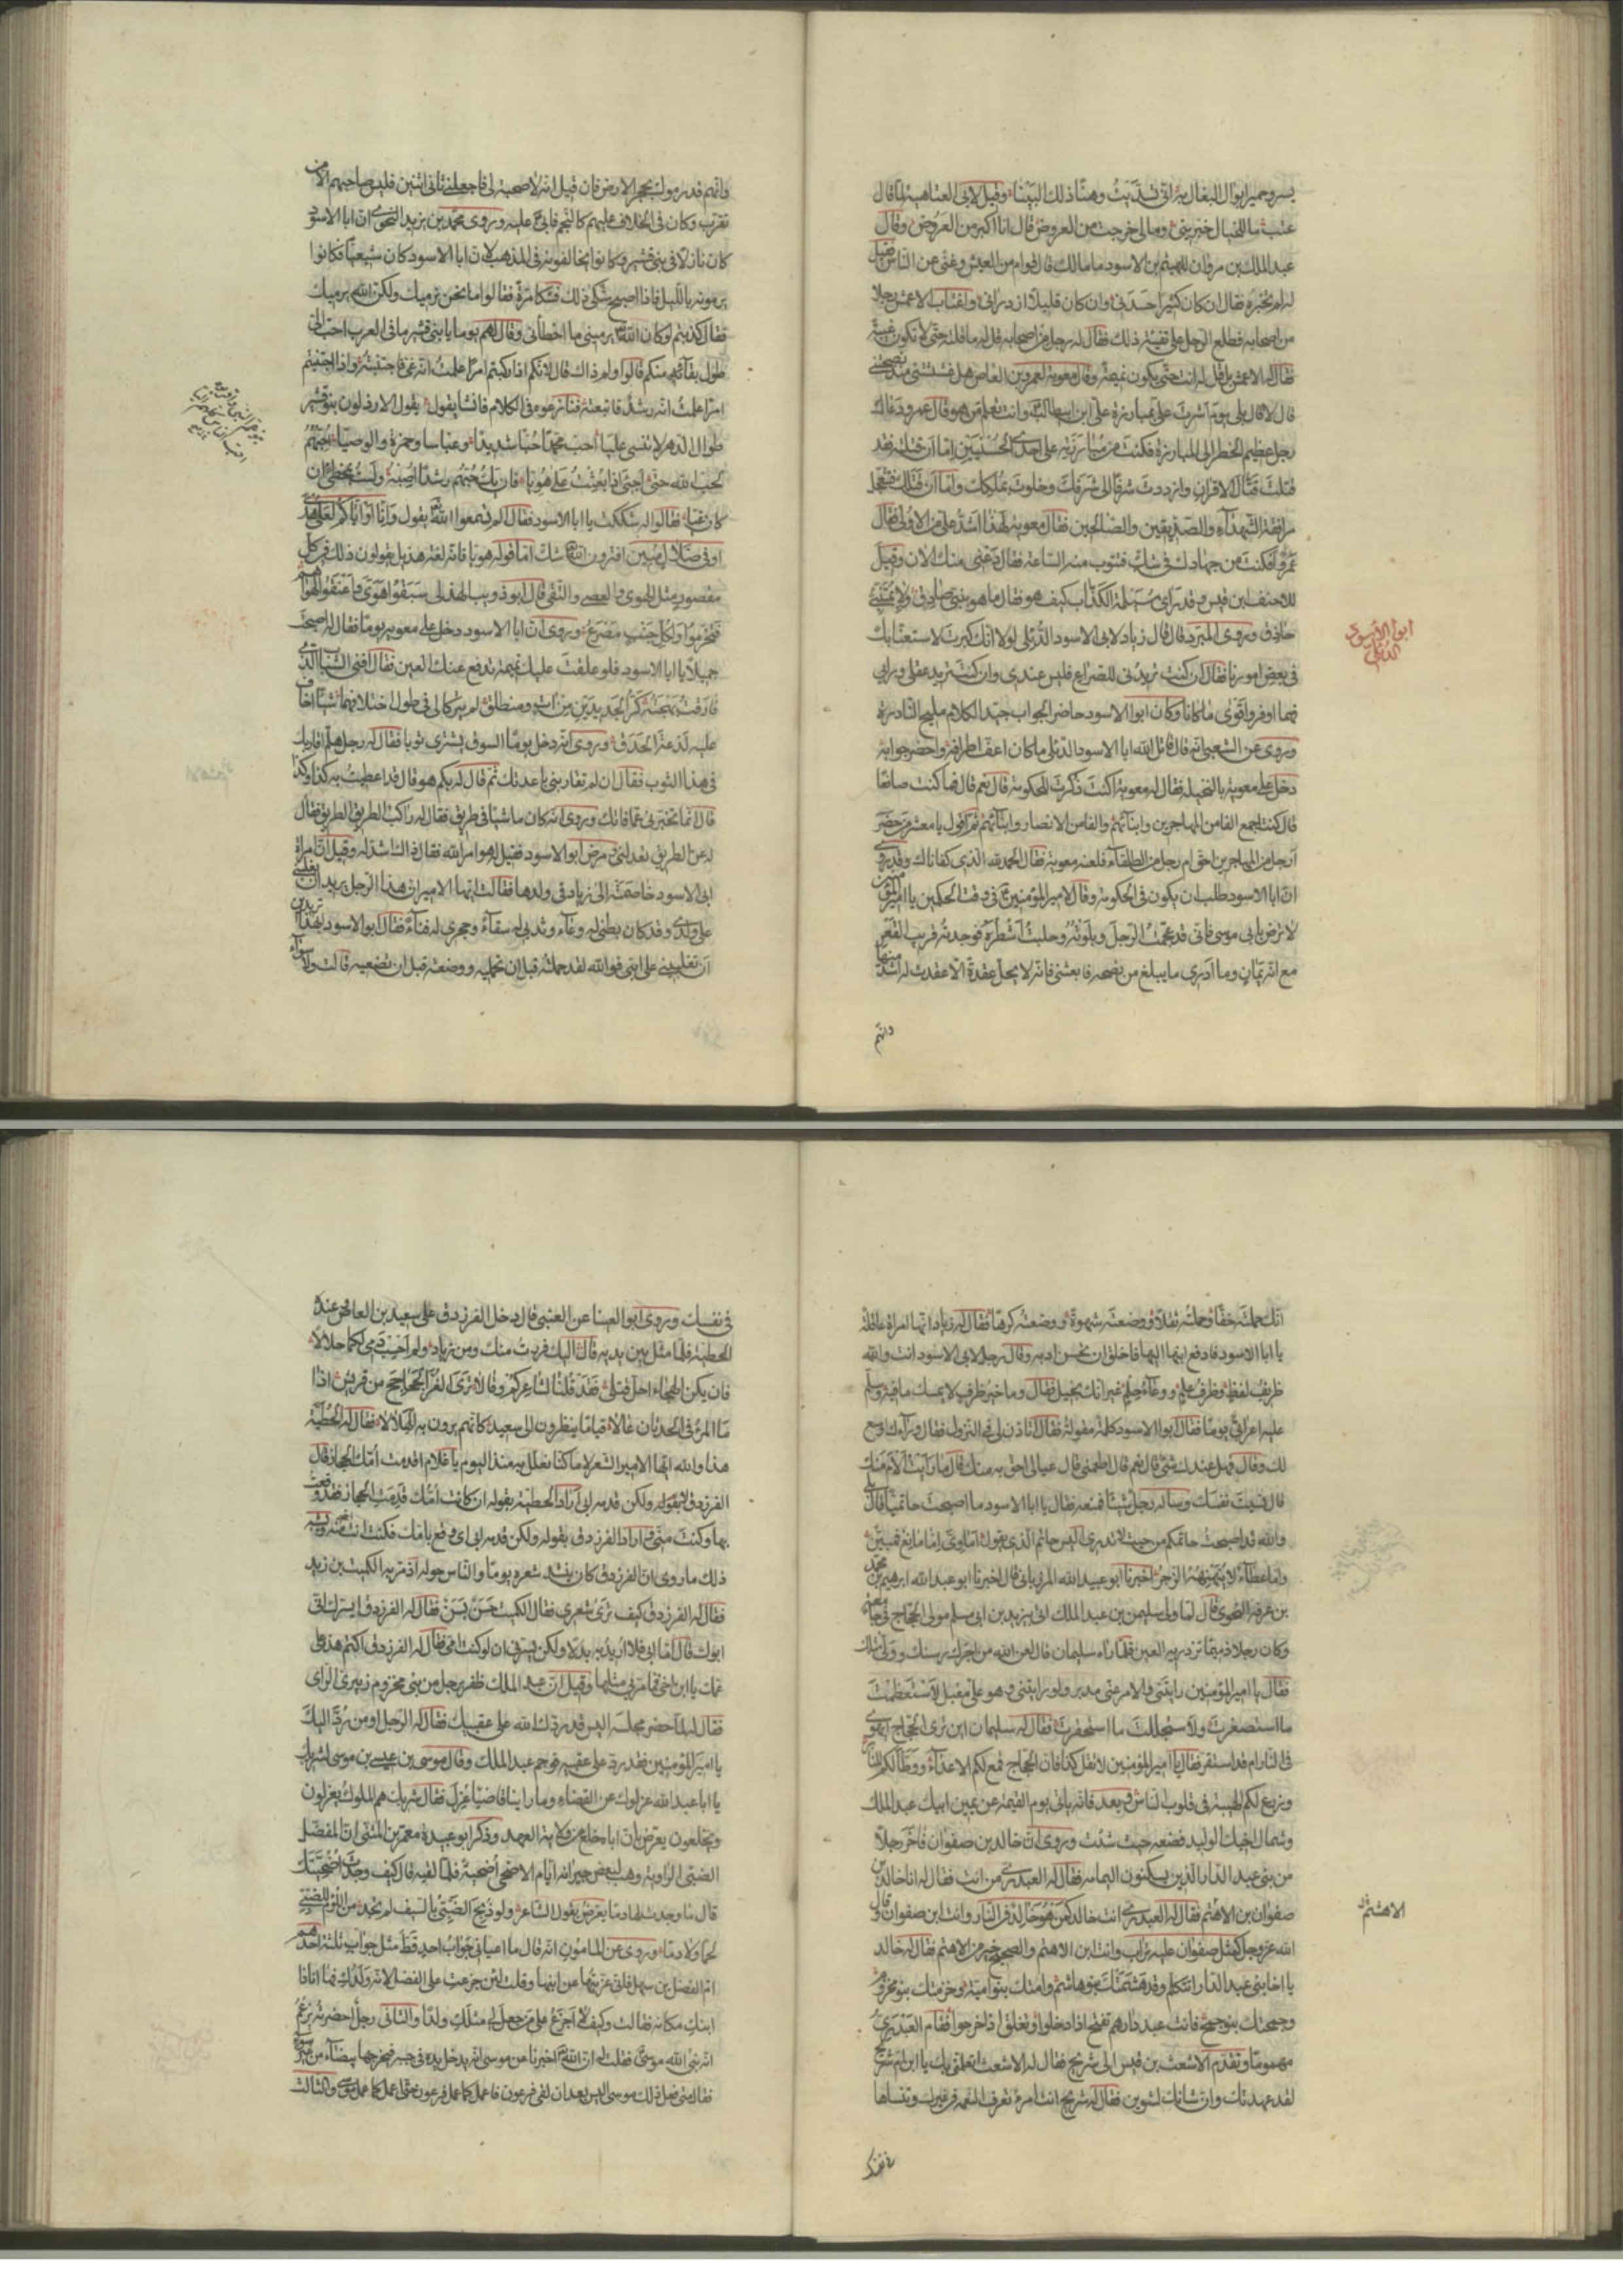 بسرو حمير ابوال البغال به انى تسديت وهنا ذلك البينا وقيل لابى العتاهية لما قال
عتب ما للخيال خبرينى ومالى خرجت من العروض قال انا اكبر من العروض وقال
عبد الملك بن مروان للهيثم بن الاسود ما مالك قال قوام من العيش وغنى عن الناس فقيل
له لم تخبره فقال ان كان كثيرا حسدنى وان كان قليلا ازدرانى واغتاب الاعمش رجلا
من اصحابه فطلع الرجل على تفيئة ذلك فقال له رجل من اصحابه قل له ما قلت حتى لا تكون غيبة
فقال له الاعمش بل قل له انت حتى يكون نميمة وقال معوية لعمرو بن العاص هل غششتنى منذ نصحتنى
قال لا قال بلى يوم اشرت على بمبارزة على ابن ابيطالب وانت تعلم من هو قال عمرو دعاك
رجل عظيم الخطر الى المبارزة فكنت من مبارزته على احدى الحسنيين اما ان قتلته فقد
قتلت قتال الاقران وازددت شرفا الى شرفك وخلوت بملكك واما ان قتلك فتعجل
مرافقة الشهداء والصديقين والصالحين فقال معوية لهذا اشد على من الاولى فقال
عمرو افكنت من جهادك فى شك فتتوب منه الساعة فقال دعنى منك الان وقيل
للاحنف ابن قيس وقد راى مسيلمة الكذاب كيف هو فقال ما هو بنبى صادق ولا بمتنبى
حاذق وروى المبرد قال قال زياد لابى الاسود الدئلى لولا انك كبرت لاستعنا بك
فى بعض امورنا فقال ان كنت تريدنى للصراع فليس عندى وان كنت تريد عقلى ورايى
فهما اوفر واقوى ما كانا وكان ابو الاسود حاضر الجواب جيد الكلام مليح النادرة
وروى عن الشعبى انه قال قاتل الله ابا الاسود الدئلى ما كان اعف اطرافه واحضر جوابه
دخل على معوية بالنخيلة فقال له معوية اكنت ذكرت للحكومة قال نعم قال فما كنت صانعا
قال كنت اجمع الفا من المهاجرين وابنائهم والفا من الانصار وابنائهم ثم اقول يا معشر من حضر
ارجل من المهاجرين احق ام رجل من الطلقاء فلعنه معوية فقال الحمد لله الذى كفاناك وقد روى
ان ابا الاسود طلب ان يكون فى الحكومة وقال لامير المؤمنين فى وقت الحكمين يا امير المؤمنين
لا ترض بابى موسى فانى قد عجمت الرجل وبلوته وحلبت اشطره فوجدته قريب القعر
مع انه يمان وما ادرى ما يبلغ من نصحه فابعثنى فانه لا يحل عقدة الا عقدت له اشد منها
وانهم
ابو الاسود الدئلى
وانهم قد رموك بحجر الارض فان قيل انه لا صحبة لى فاجعلنى ثانى اثنين فليس صاحبهم الا من
تقرب وكان فى الخلاف عليهم كالنجم فابى عليه وروى محمد بن يزيد النحوى ان ابا الاسود
كان نازلا فى بنى قشير وكانوا يخالفونه فى المذهب لان ابا الاسود كان شيعيا فكانوا
يرمونه بالليل فاذا اصبح شكى ذلك فشكا مرة فقالوا ما نحن نرميك ولكن الله يرميك
فقال كذبتم لو كان الله يرمينى ما اخطأنى وقال لهم يوما يا بنى قشير ما فى العرب احب الى
طول بقائهم منكم قالوا ولم ذاك قال لانكم اذا ركبتم امرا علمت انه غى فاجتنبته واذا اجتنبتم
امرا علمت انه رشد فاتبعته فنازعوه فى الكلام فانشا يقول يقول الارذلون بنو قشير
طوال الدهر لا تنسى عليا احب محمدا حبا شديدا وعباسا وحمزة والوصيا احبهم
لحب الله حتى اجئ اذا بعثت على هويا فان يك حبهم رشدا اصبه ولست بمخطئ ان
كان غيا فقالوا له شككت يا ابا الاسود فقال الم تسمعوا الله يقول وانا او اياكم لعلى هدى
او فى ضلال مبين افترون الله شك اما قوله هويا فانه لغة هذيل يقولون ذلك فى كل
مقصور مثل الهوى والعصى والتقى قال ابو ذويب الهذلى سبقوا هوى واعنقوا لهواهم
فتخرموا ولكل جنب مصرع وروى ان ابا الاسود دخل على معوية يوما فقال له اصبحت
جميلا يا ابا الاسود فلو علقت عليك تميمة تدفع عنك العين فقال افنى الشباب الذى
فارقت بهجته كر الجديدين من ات ومنطلق لم يتركا لى فى طول اختلافهما شيئا اخاف
عليه لذعة الحدق وروى انه دخل يوما السوق يشترى ثوبا فقال له رجل هلم اقاربك
فى هذا الثوب فقال ان لم تقاربنى باعدتك ثم قال له بكم هو قال قد اعطيت به كذا وكذا
قال انما تخبرنى عما فاتك وروى انه كان ماشيا فى طريق فقال له راكب الطريق الطريق فقال
له عن الطريق تعدلنى ومرض ابو الاسود فقيل له هو امر الله فقال ذاك اشد له وقيل ان امراة
ابى الاسود خاصمته الى زياد فى ولدها فقالت ايها الامير ان هذا الرجل يريد ان يغلبنى
على ولدى وقد كان بطنى له وعاء وثديى له سقاء وحجرى له فناء فقال ابو الاسود بهذا تريدين
ان تغلبينى على ابنى فوالله لقد حملته قبل ان تحمليه ووضعته قبل ان تضعيه قالت ولا سواء
انك حملته خفا وحملته ثقلا ووضعته شهوة ووضعته كرها فقال له زياد انها امراة عاقلة
يا ابا الاسود فادفع ابنها اليها فاخلق ان تحسن ادبه وقال رجل لابى الاسود انت والله
ظريف لفظ وظرف علم ووعاء حلم غير انك بخيل فقال وما خير ظرف لا يمسك ما فيه وسلم
عليه اعرابى يوما فقال ابو الاسود كلمة مقولة فقال اتاذن لى فى النزول فقال وراءك اوسع
لك وقال فهل عندك شئ قال نعم قال اطعمنى قال عيالى احق به منك قال ما رايت الأم منك
قال نسيت نفسك وساله رجل شيئا فمنعه فقال يا ابا الاسود ما اصبحت حاتميا قال بلى
والله قد اصبحت حاتمكم من حيث لا تدرى اليس حاتم الذى يقول اماوى اما مانع فمبين
واما عطاء لا ينهنهه الزجر اخبرنا ابو عبيد الله المرزبانى قال اخبرنا ابو عبد الله ابرهيم بن محمد
بن عرفة النحوى قال لما ولى سليمن بن عبد الملك اتى بيزيد بن ابى مسلم مولى الحجاج فى جامعة
وكان رجلا دميما تزدريه العين فلما راه سليمان قال لعن الله من اجرك رسنك وولى مثلك
فقال يا امير المؤمنين رايتنى والامر عنى مدبر ولو رايتنى وهو على مقبل لاستعظمت
ما استصغرت ولاستجللت ما استحقرت فقال له سليمان اين ترى الحجاج ايهوى
فى النار ام قد استقر فقال يا امير المؤمنين لا تقل كذا فان الحجاج قمع لكم الاعداء ووطا لكم المنابر
وزرع لكم الهيبة فى قلوب الناس وبعد فانه ياتى يوم القيمة عن يمين ابيك عبد الملك
وشمال اخيك الوليد فضعه حيث شئت وروى ان خالد بن صفوان فاخر رجلا
من بنى عبد الدار الذين يسكنون اليمامة فقال له العبدرى من انت فقال له انا خالد بن
صفوان بن الاهتم فقال له العبدرى انت خالد كمن هو خالد فى النار وانت ابن صفوان وقال
الله عز وجل كمثل صفوان عليه تراب وانت ابن الاهتم والصحيح خير من الاهتم فقال له خالد
يا اخا بنى عبد الدار اتتكلم وقد هشمتك بنو هاشم وامتك بنو امية وخزمتك بنو مخزوم
وجمحتك بنو جمح فانت عبد دارهم تفتح اذا دخلوا وتغلق اذا خرجوا فقام العبدرى
مهموما وتقدم الاشعث بن قيس الى شريح فقال له الاشعث اتعلق بك يا ابن ام شريح
لقد عهدتك وان شانك لشوين فقال له شريح انت امرء تعرف النعمة فى غيرك وتنساها
فى نفسك
الاهتم
فى نفسك وروى ابو العينا عن العتبى قال دخل الفرزدق على سعيد بن العاص وعنده
الحطيئة فلما مثل بين يديه قال اليك فررت منك ومن زياد ولم احسب دمى لكما حلالا
فان يكن الهجاء احل قتلى فقد قلنا لشاعركم وقالا ترى الغر الجحاجح من قريش اذا
ما المرء فى الحدثان غالا قياما ينظرون الى سعيد كانهم يرون به الهلالا فقال له الحطيئة
هذا والله ايها الامير الشعر لا ما كنا نعلل به منذ اليوم يا غلام اقدمت امك الحجاز قال
الفرزدق لا بقوله ولكن قدمه ابى اراد الحطيئة بقوله ان كانت امك قدمت الحجاز فقد وقعت
بها وكنت منى واراد الفرزدق بقوله ولكن قدمه ابى اى وقع بامك فكنت انت منه ويشبه
ذلك ما روى ان الفرزدق كان ينشد شعره يوما والناس حوله اذ مر به الكميت بن زيد
فقال له الفرزدق كيف ترى شعرى فقال الكميت حسن بسن فقال له الفرزدق ايسرك انى
ابوك قال اما ابى فلا اريد به بدلا ولكن يسرنى ان لو كنت امى فقال له الفرزدق اكتم هذه على
عمك يا ابن اخى فما مر بى مثلها وقيل ان عبد الملك ظفر برجل من بنى مخزوم زبيرى الراى
فقال له لما حضر مجلسه اليس قد ردك الله على عقبيك فقال له الرجل اومن رد اليك
يا امير المؤمنين فقد رد على عقبيه فوجم عبد الملك وقال موسى بن عيسى بن موسى لشريك
يا ابا عبد الله عزلوك عن القضاء وما راينا قاضيا عزل فقال شريك هم الملوك يعزلون
ويخلعون يعرض بان اباه خلع من ولاية العهد وذكر ابو عبيدة معمر بن المثنى ان المفضل
الضبى الراوية وهب لبعض جيرانه ايام الاضحى اضحية فلما لقيه قال كيف وجدت اضحيتك
قال ما وجدت لها دما يعرض بقول الشاعر ولو ذبح الضبى بالسيف لم تجد من اللؤم للضبى
لحما ولا دما وروى عن المامون انه قال ما اعيانى جواب احد قط مثل جواب ثلثة احدهم
ام الفضل بن سهل فانى عزيتها عن ابنها وقلت لئن جزعت على الفضل لانه ولدك فها انا ذا
ابنك مكانه فقالت وكيف لا اجزع على من جعل لى مثلك ولدا والثانى رجل احضرته يزعم
انه نبى الله موسى فقلت له ان الله اخبرنا عن موسى انه يدخل يده فى جيبه فيخرجها بيضاء من غير سوء
فقال متى فعل ذلك موسى اليس بعد ان لقى فرعون فاعمل كما عمل فرعون حتى اعمل كما عمل موسى والثالث